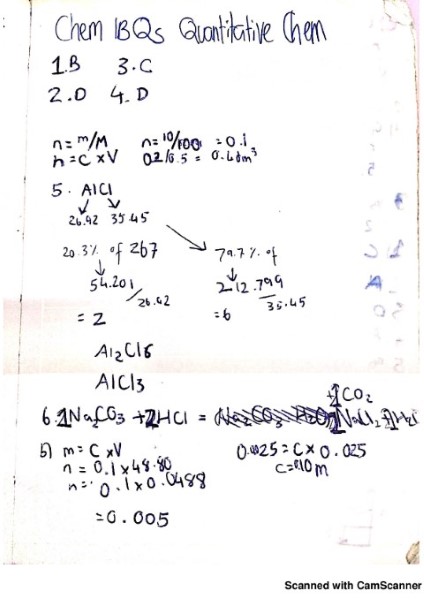 Chem IBQs Quantitative Chem
1.B 3.C
2.D 4.D
n = m/M n = 10/100 = 0.1
n = C x V 0.2/0.5 = 0.4dm³
5. AlCl
26.92 35.45
20.3% of 267 79.7% of
54.201 / 26.92 212.799 / 35.45
= 2 = 6
Al2Cl6
AlCl3
+1CO2
6. 1Na2CO3 + 2HCl =
b) n = C x V 0.0025 = C x 0.025
n = 0.1 x 48.80 C = 0.10 m
n = 0.1 x 0.0488
= 0.005
Scanned with CamScanner